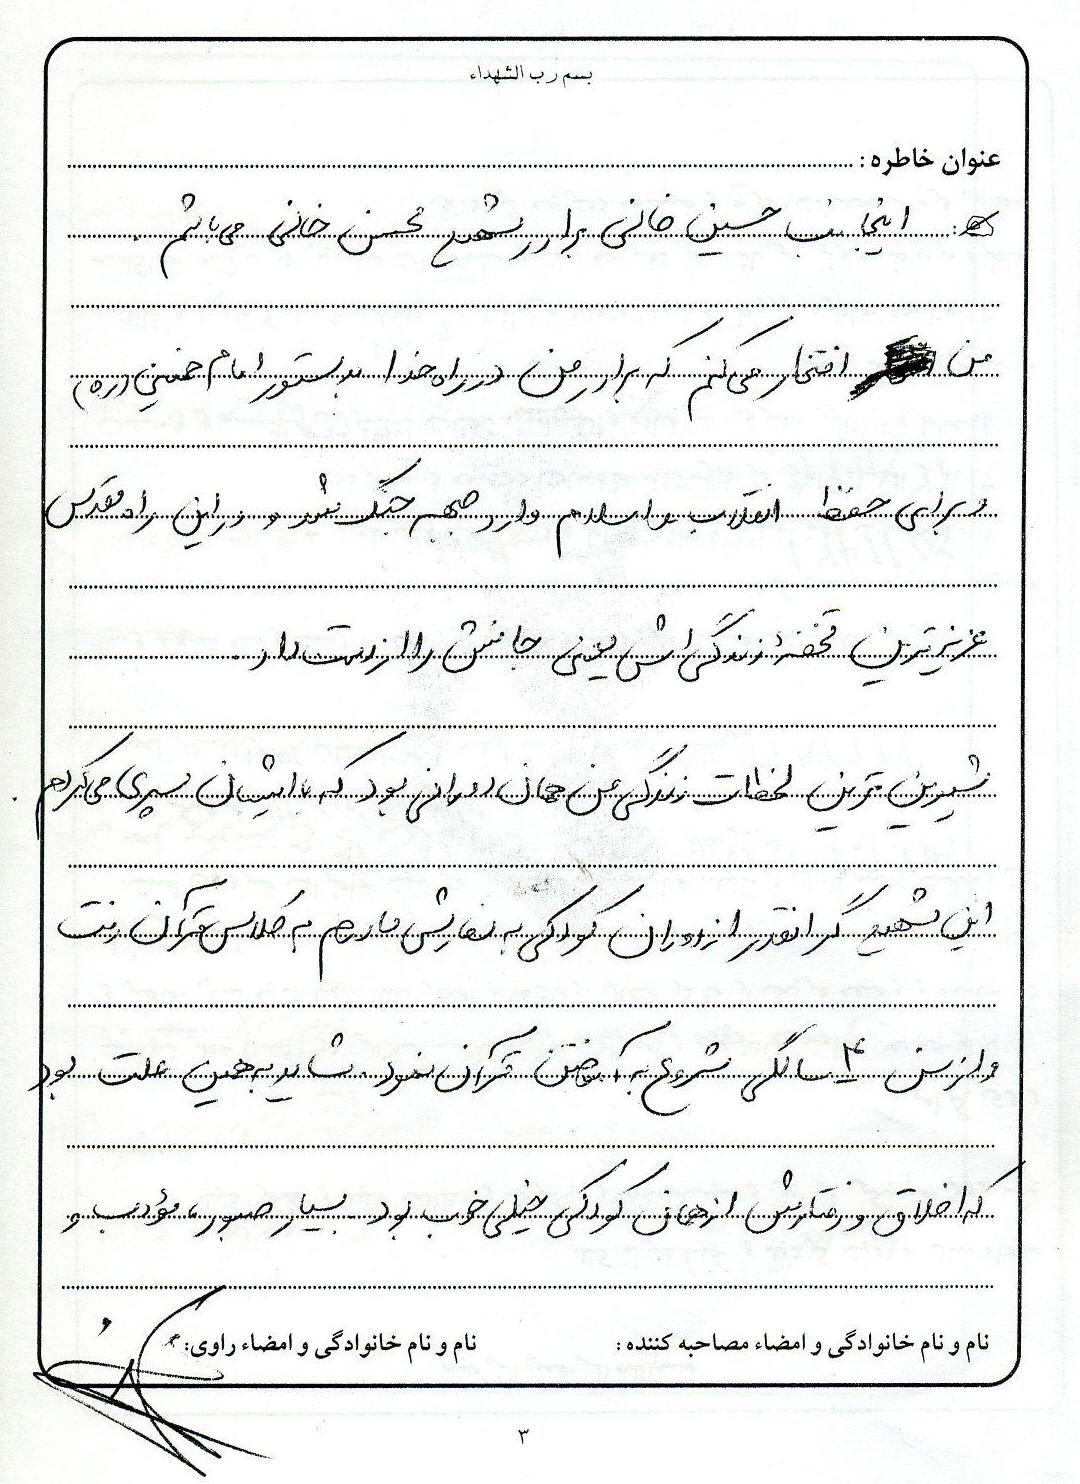 بسم رب الشهداء
عنوان خاطره :
اینجانب حسین خانی برادر شهید محسن خانی می باشم .
من افتخار می کنم که برادر من در راه خدا بدستور امام خمینی (ره)
و برای حفظ انقلاب و اسلام وارد جبهه جنگ شد و در این راه مقدس
عزیزترین تحفهٔ زندگی اش یعنی جانش را از دست داد .
شیرین ترین لحظات زندگی من همان دورانی بود که با ایشان سپری می کردم .
این شهید گرانقدر از دوران کودکی به سفارش مادرم به کلاس قرآن رفت
و از سن ۴ سالگی شروع به آموختن قرآن نمود . شاید به همین علت بود
که اخلاق و رفتارش از همان کودکی خیلی خوب بود . بسیار صبور ، مؤدب و
نام و نام خانوادگی و امضاء مصاحبه کننده :
نام و نام خانوادگی و امضاء راوی :
۳